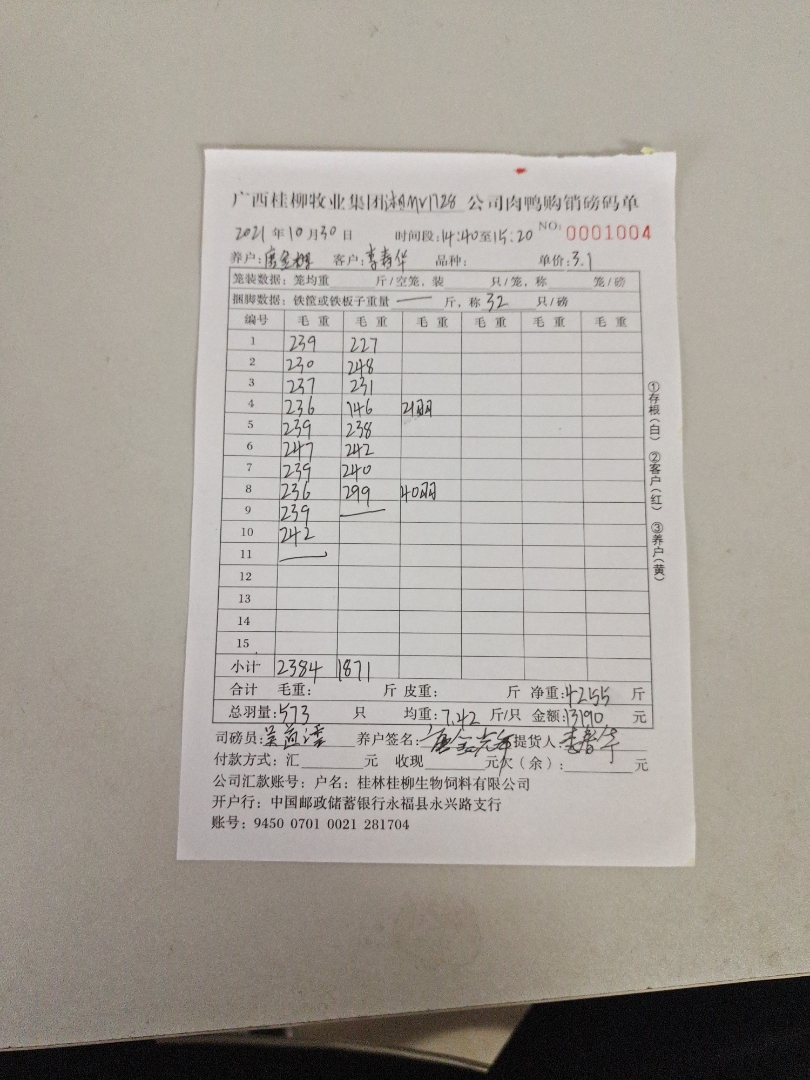 广西桂柳牧业集团湘MV1728公司肉鸭购销磅码单
2021年10月30日 时间段:14:40至15:20 NO: 0001004
养户: 客户:李春华 品种: 单价:3.1
笼装数据: 笼均重 斤/空笼, 装 只/笼, 称 笼/磅
捆脚数据: 铁筐或铁板子重量 — 斤, 称 32 只/磅
编号 毛重 毛重 毛重 毛重 毛重 毛重
1 239 227
2 230 248
3 237 231
4 236 146 21羽
5 239 238
6 247 242
7 239 240
8 236 299 40羽
9 239 —
10 242
11 —
12
13
14
15
小计 2384 1871
合计 毛重: 斤 皮重: 斤 净重:4255 斤
总羽量:573 只 均重:7.42 斤/只 金额:13190 元
司磅员: 养户签名: 提货人:李春华
付款方式: 汇 元 收现 元欠(余): 元
公司汇款账号: 户名: 桂林桂柳生物饲料有限公司
开户行: 中国邮政储蓄银行永福县永兴路支行
账号: 9450 0701 0021 281704
①存根(白) ②客户(红) ③养户(黄)